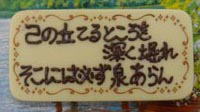 己の立てるところを
深く掘れ
そこには必ず泉あらん